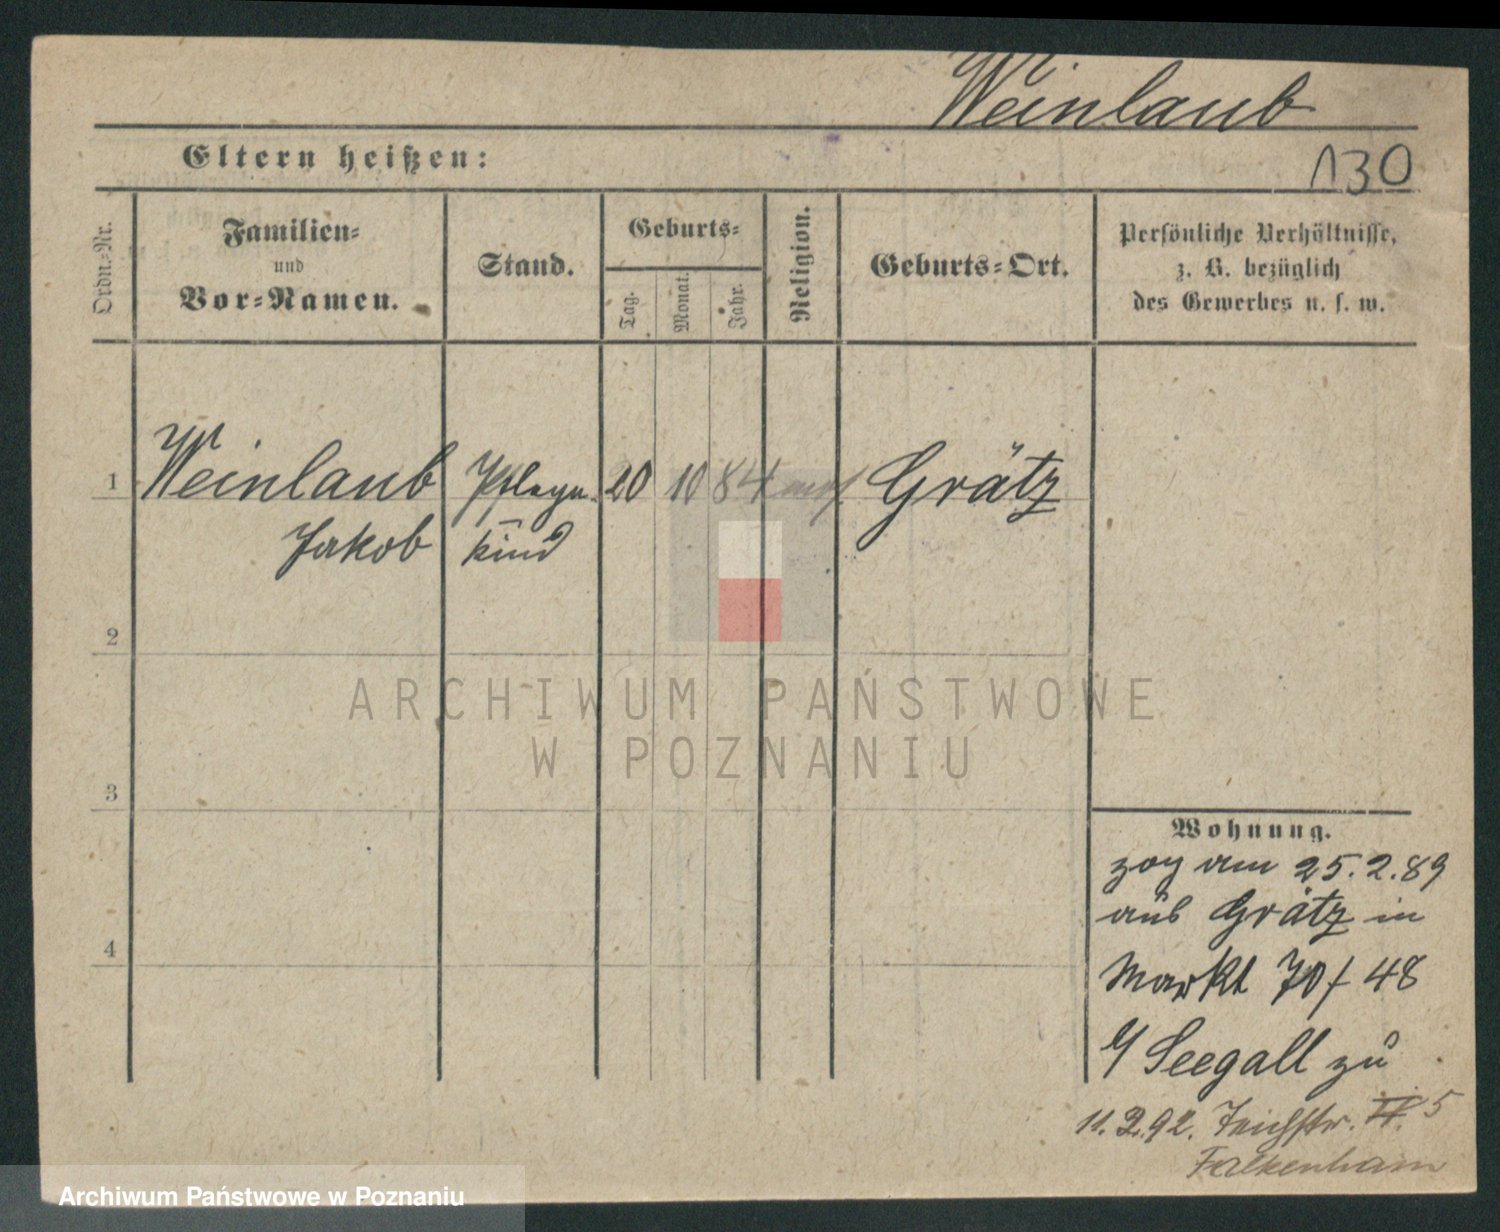 Weinlaub
Eltern heißen:
130
Ordn.-Nr.
Familien-
und
Vor-Namen.
Stand.
Geburts-
Tag.
Monat.
Jahr.
Religion.
Geburts-Ort.
Persönliche Verhältnisse,
z. B. bezüglich
des Gewerbes u. s. w.
1 Weinlaub Pflege- 20 10 84 mos. Grätz
Jakob kind
2
3
4
Wohnung.
zog am 25.2.89
aus Grätz in
Markt 70/48
Seegall zu
11.2.92. Teichstr. 5
Falkenhain
ARCHIWUM PAŃSTWOWE
W POZNANIU
Archiwum Państwowe w Poznaniu